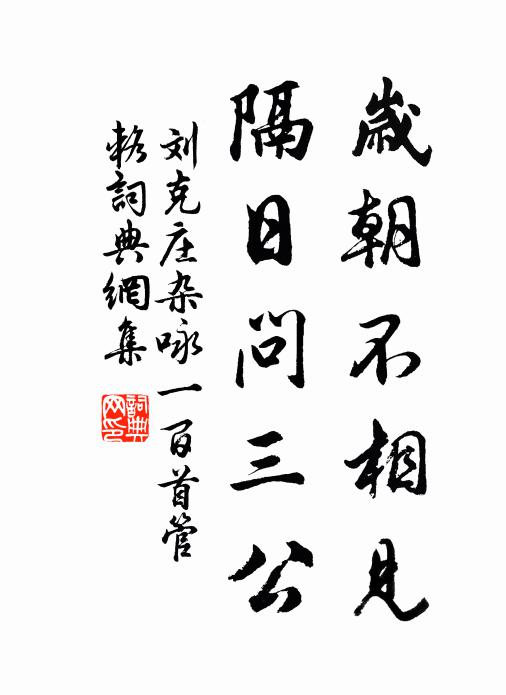 歲朝不相見
隔日問三公
刘克庄杂咏一百首管
敕詞典網集
詞典网印